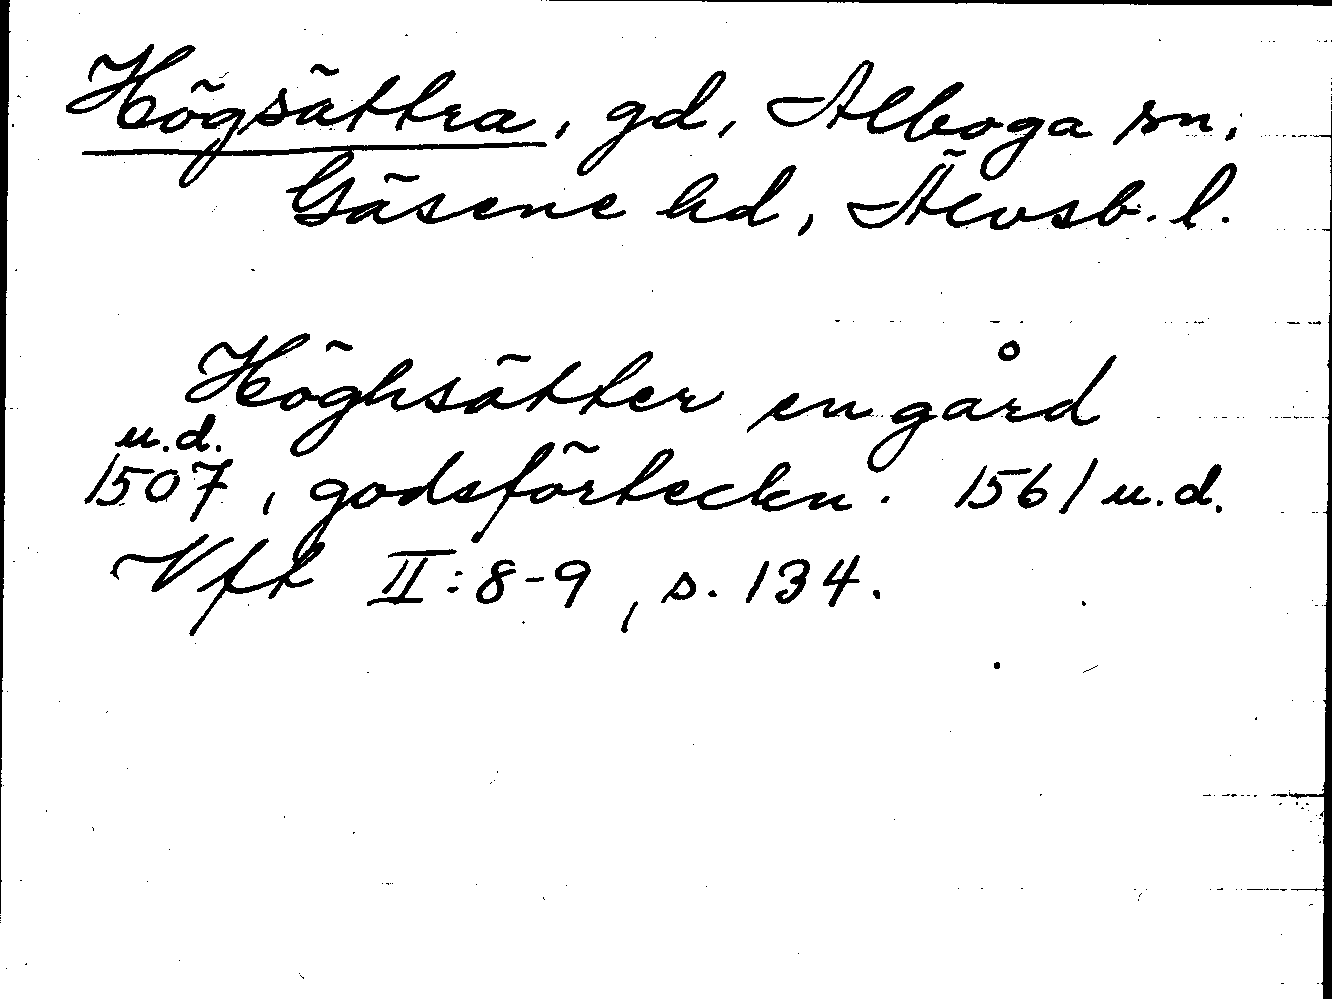 Högsättra, gd, Alboga sn,
Gäsene hd, Älvsb. l.
Höghsätter en gård
u.d.
1507, godsförteckn. 1561 u.d.
Vft II:8-9, s. 134.